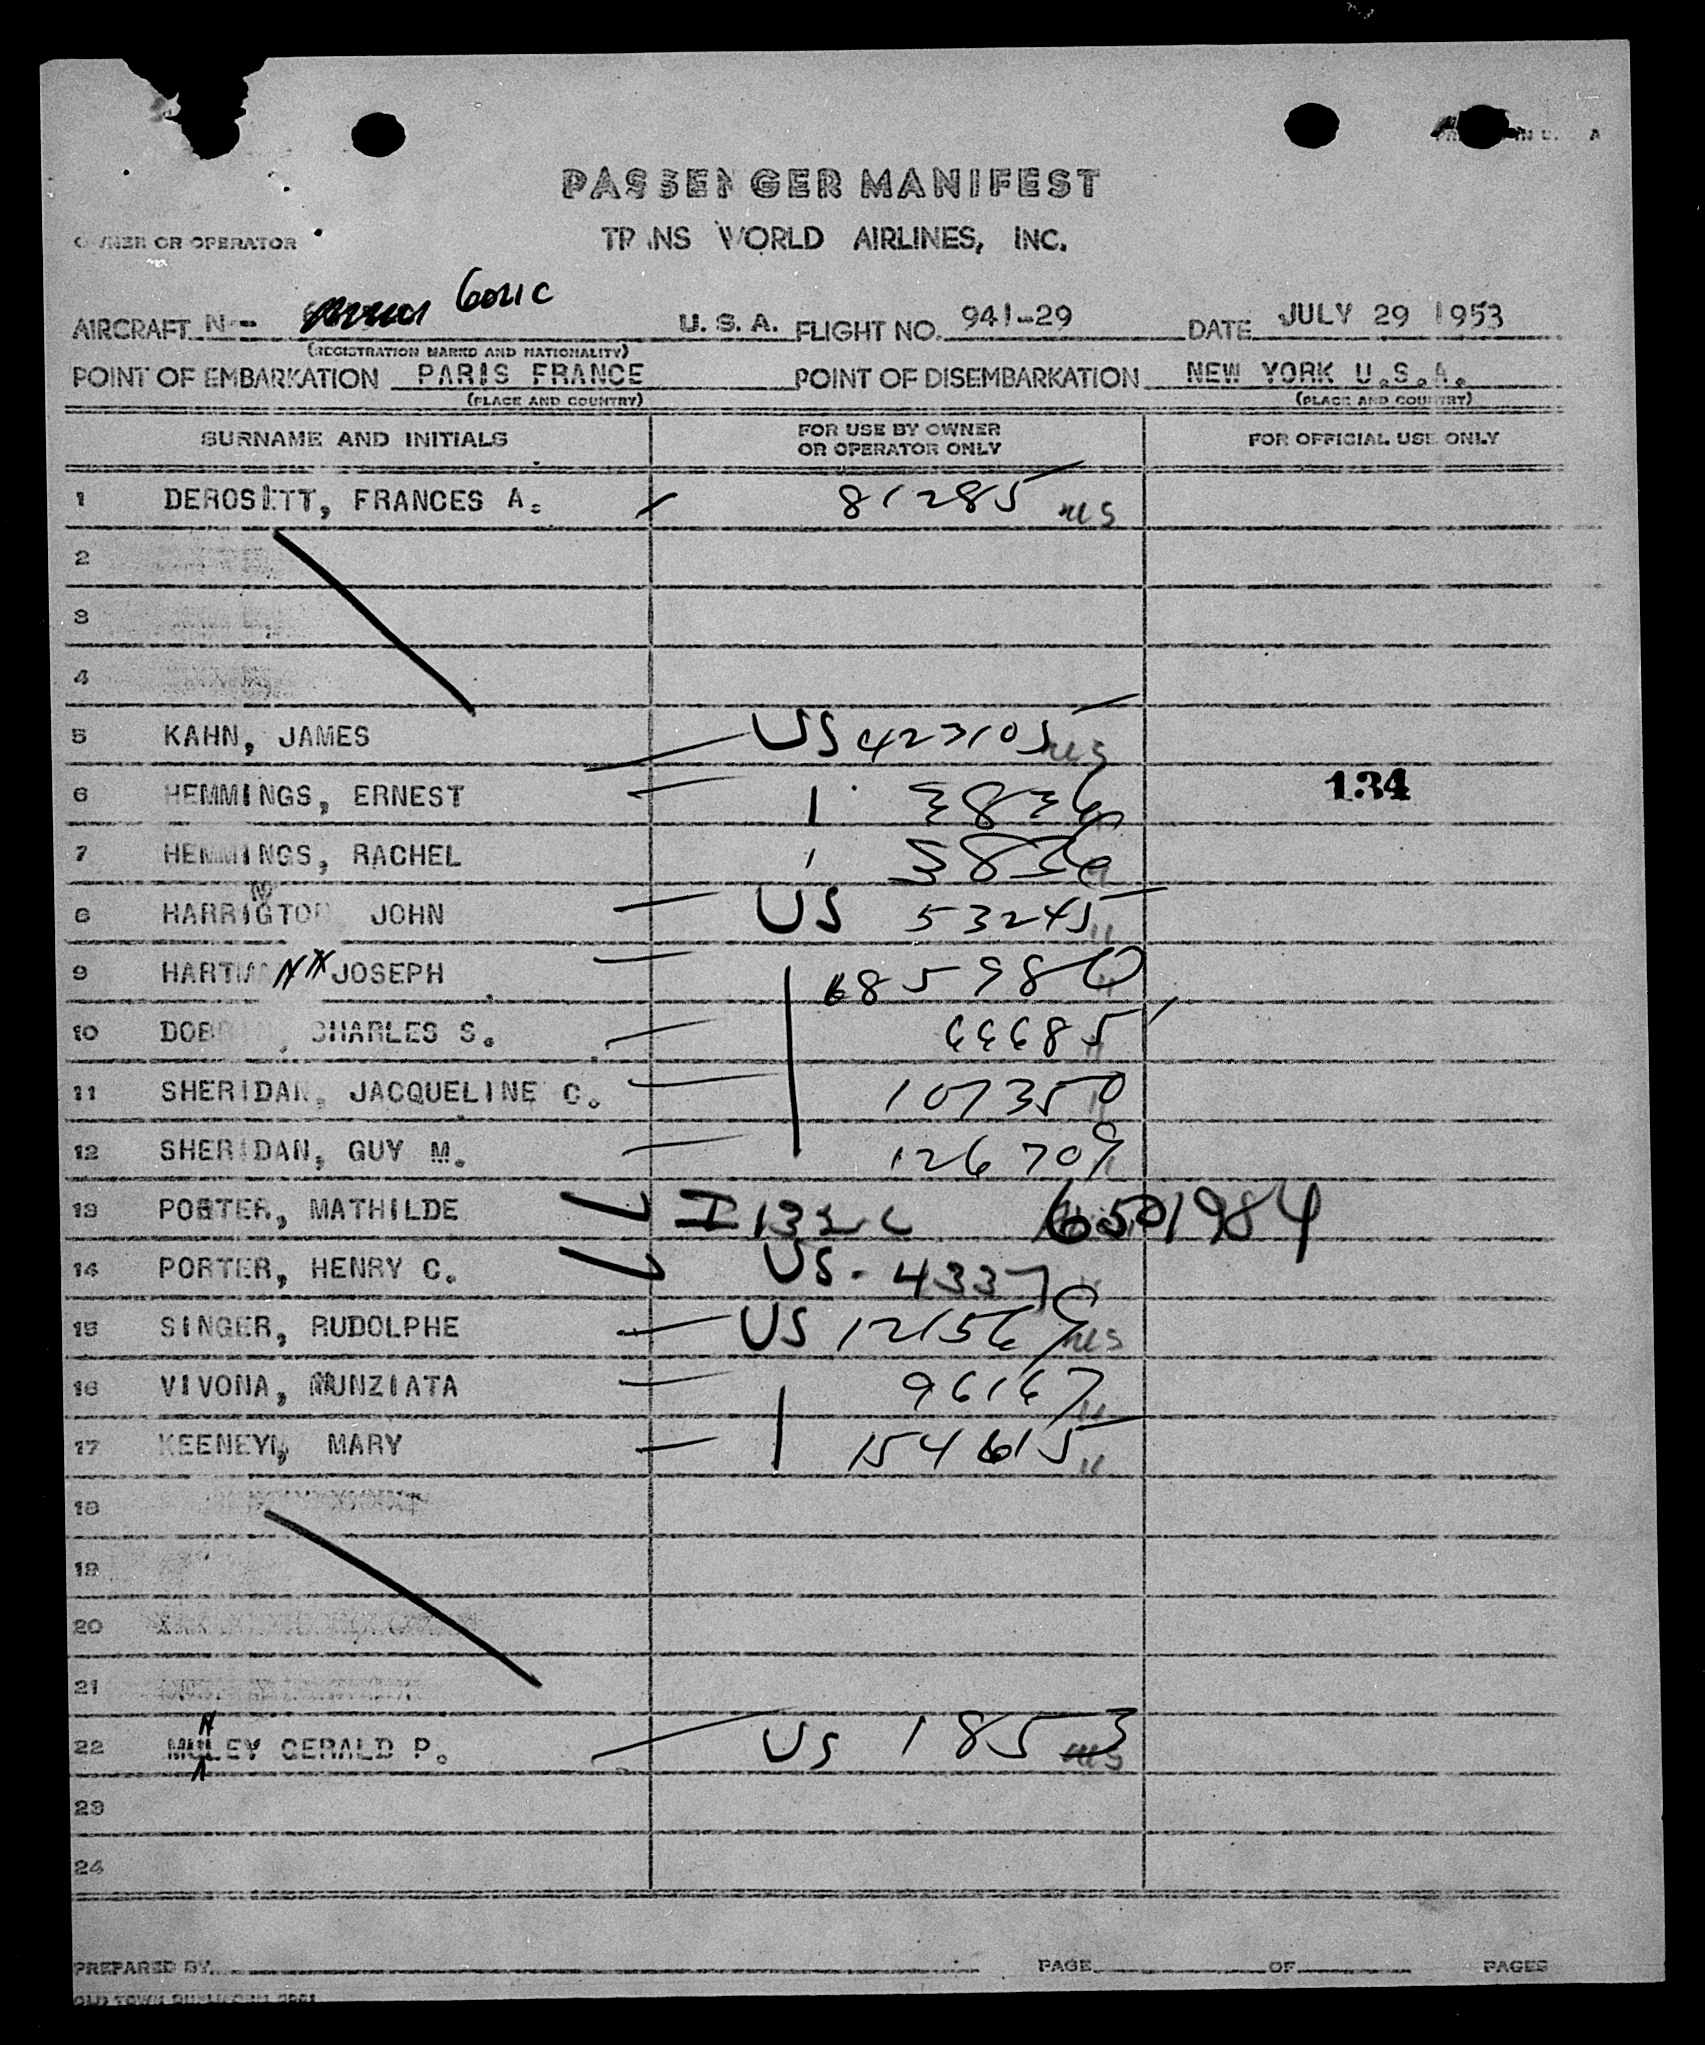 PASSENGER MANIFEST
OWNER OR OPERATOR TRANS WORLD AIRLINES, INC.
AIRCRAFT N-- 6021C U. S. A. FLIGHT NO. 941-29 DATE JULY 29 1953
(REGISTRATION MARKS AND NATIONALITY)
POINT OF EMBARKATION PARIS FRANCE POINT OF DISEMBARKATION NEW YORK U.S.A.
(PLACE AND COUNTRY) (PLACE AND COUNTRY)
SURNAME AND INITIALS FOR USE BY OWNER OR OPERATOR ONLY FOR OFFICIAL USE ONLY
1 DEROSETT, FRANCES A. 81285
2
3
4
5 KAHN, JAMES US 423105
6 HEMMINGS, ERNEST 3836 134
7 HEMMINGS, RACHEL 3836
8 HARRIGTON JOHN US 53245
9 HARTMANN JOSEPH 685980
10 CHARLES S. 66685
11 SHERIDAN, JACQUELINE C. 107350
12 SHERIDAN, GUY M. 126709
13 PORTER, MATHILDE I 132 C 6501984
14 PORTER, HENRY C. US. 4337
15 SINGER, RUDOLPHE US 121569
16 VIVONA, NUNZIATA 96167
17 KEENEY, MARY 154615
18
19
20
21
22 GERALD P. US 1853
23
24
PREPARED BY PAGE OF PAGES